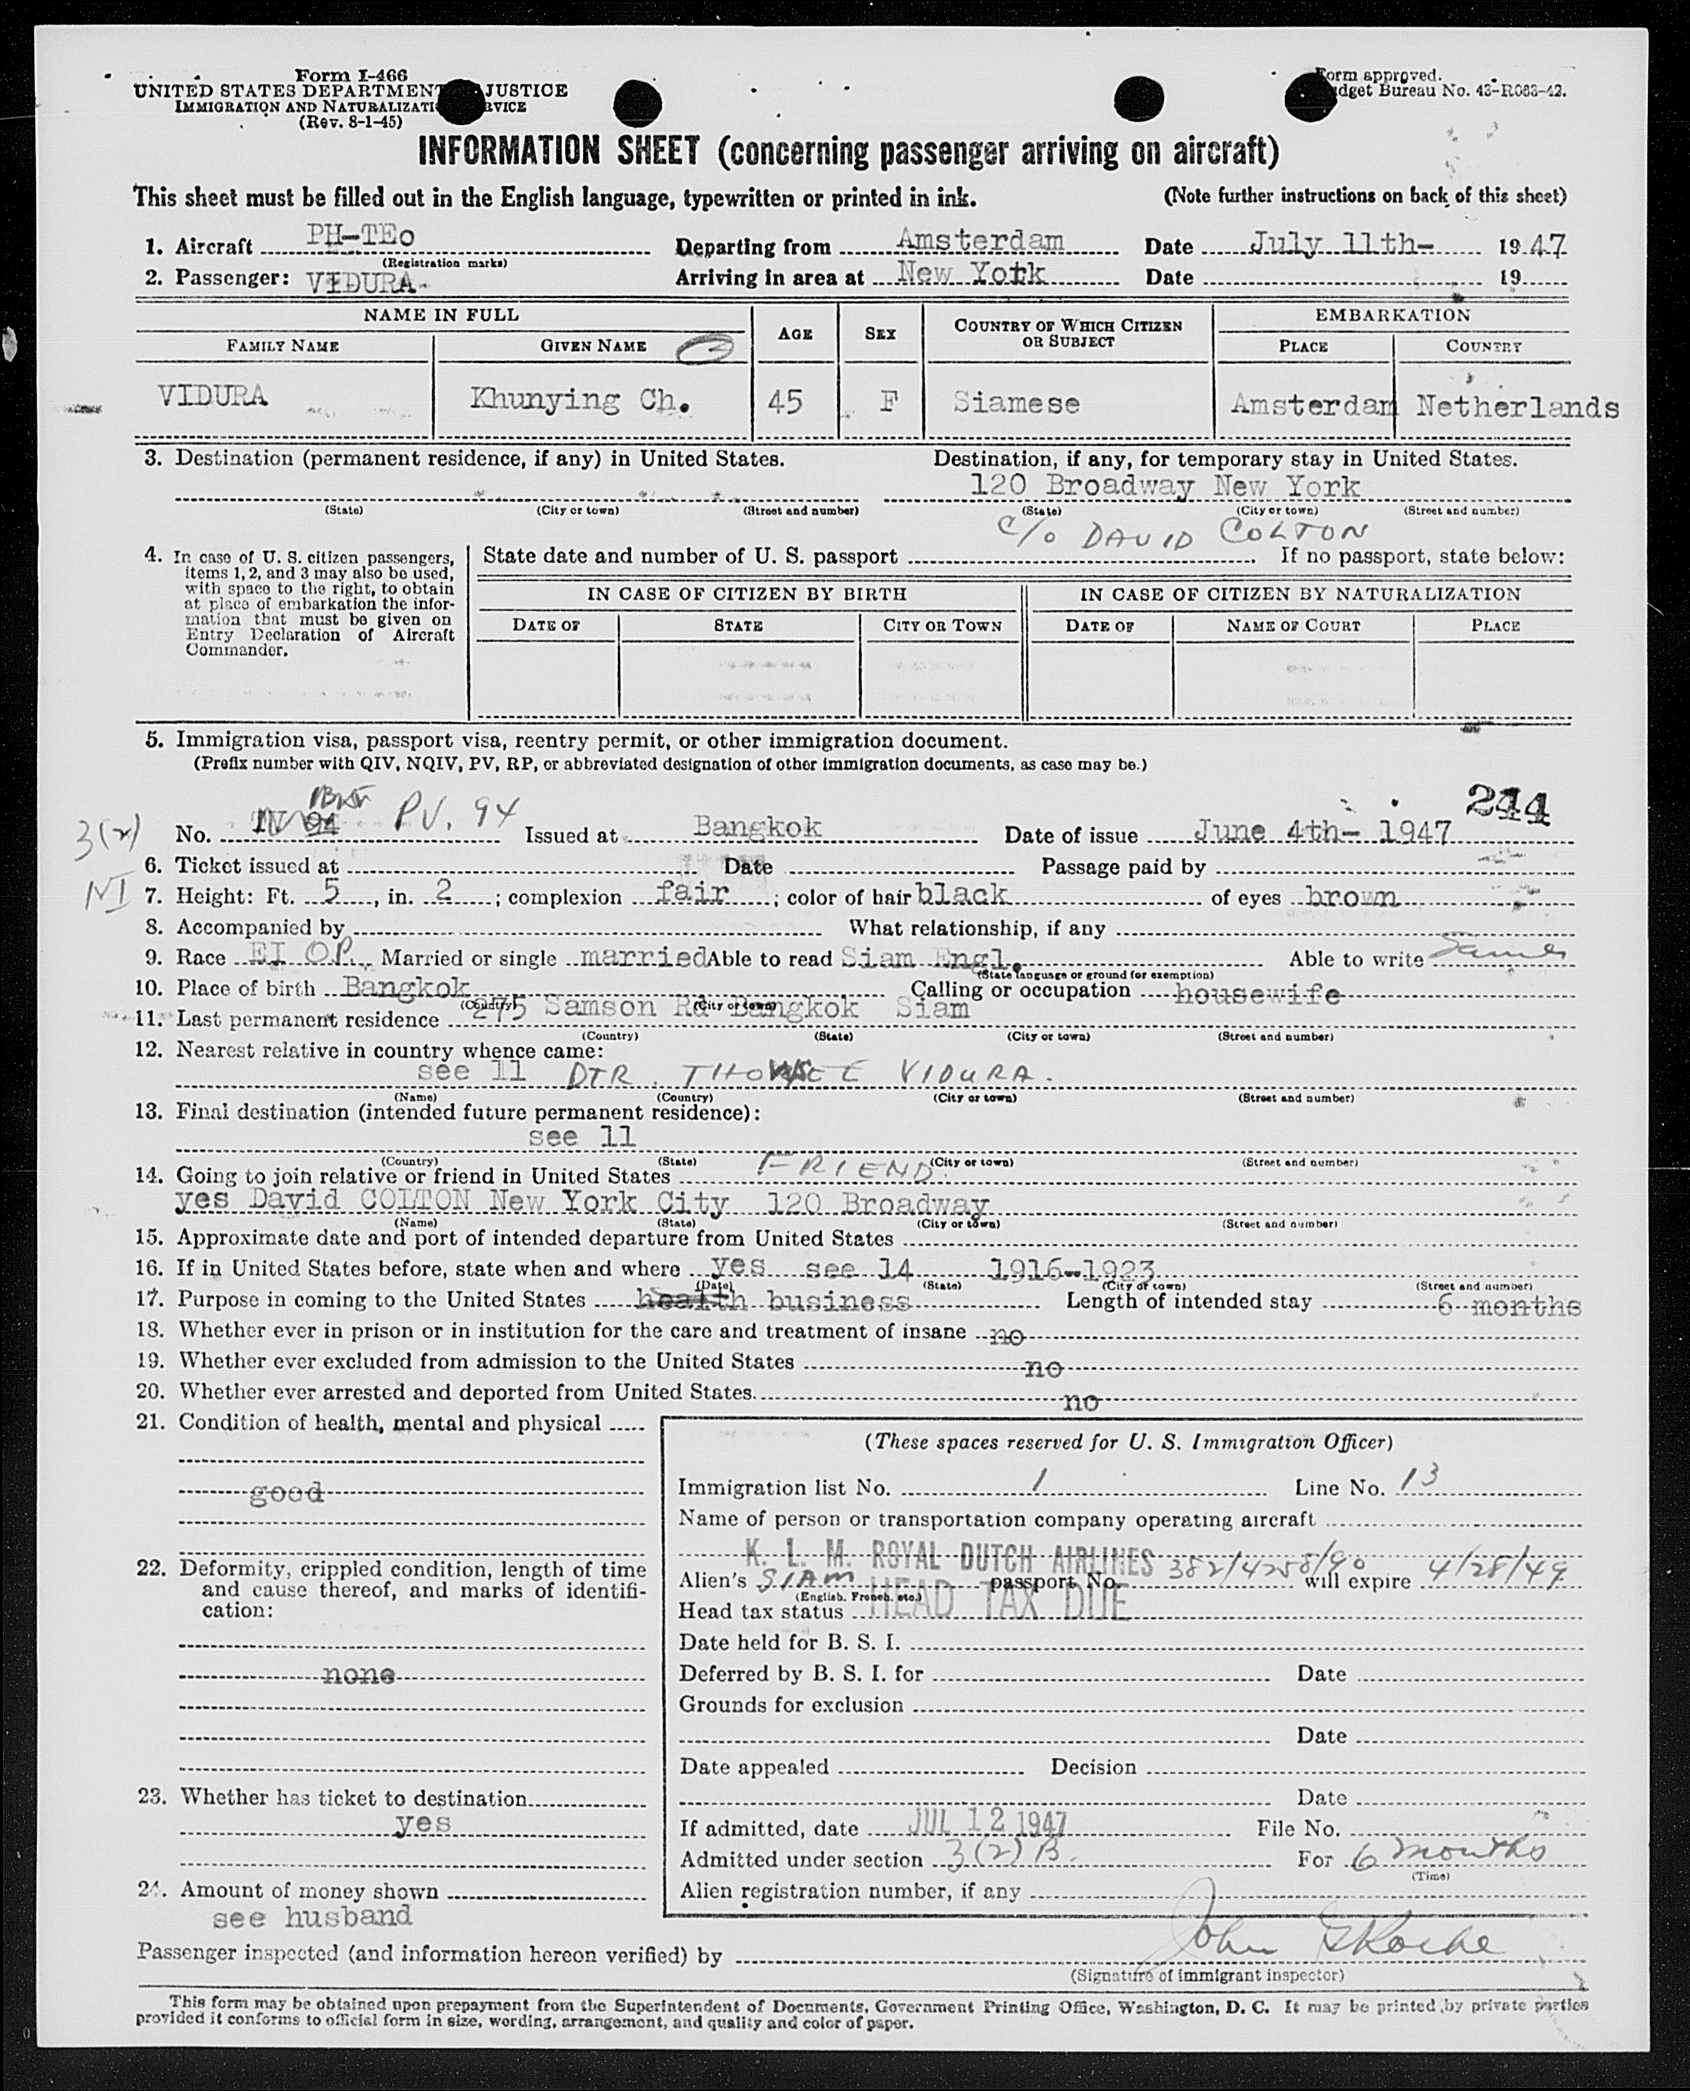 Form I-466
UNITED STATES DEPARTMENT JUSTICE
IMMIGRATION AND NATURALIZATI RVICE
(Rev. 8-1-45)
Form approved.
dget Bureau No. 43-R083-42.
INFORMATION SHEET (concerning passenger arriving on aircraft)
This sheet must be filled out in the English language, typewritten or printed in ink. (Note further instructions on back of this sheet)
1. Aircraft PH-TEo Departing from Amsterdam Date July 11th- 1947
(Registration marks)
2. Passenger: VIDURA- Arriving in area at New York Date 19
NAME IN FULL AGE SEX COUNTRY OF WHICH CITIZEN OR SUBJECT EMBARKATION
FAMILY NAME GIVEN NAME PLACE COUNTRY
VIDURA Khunying Ch. 45 F Siamese Amsterdam Netherlands
3. Destination (permanent residence, if any) in United States. Destination, if any, for temporary stay in United States.
120 Broadway New York
(State) (City or town) (Street and number) (State) (City or town) (Street and number)
c/o DAVID COLTON
4. In case of U. S. citizen passengers, items 1, 2, and 3 may also be used, with space to the right, to obtain at place of embarkation the information that must be given on Entry Declaration of Aircraft Commander.
State date and number of U. S. passport If no passport, state below:
IN CASE OF CITIZEN BY BIRTH IN CASE OF CITIZEN BY NATURALIZATION
DATE OF STATE CITY OR TOWN DATE OF NAME OF COURT PLACE
5. Immigration visa, passport visa, reentry permit, or other immigration document.
(Prefix number with QIV, NQIV, PV, RP, or abbreviated designation of other immigration documents, as case may be.)
244
3(2) No. PV. 94 Issued at Bangkok Date of issue June 4th- 1947
6. Ticket issued at Date Passage paid by
NI 7. Height: Ft. 5, in. 2; complexion fair; color of hair black of eyes brown
8. Accompanied by What relationship, if any
9. Race EI OP. Married or single married Able to read Siam Engl. Able to write Same
(State language or ground for exemption)
10. Place of birth Bangkok Calling or occupation housewife
(Country) (City or town)
11. Last permanent residence 275 Samson Rd Bangkok Siam
(Country) (State) (City or town) (Street and number)
12. Nearest relative in country whence came:
see 11 DTR. VIDURA.
(Name) (Country) (City or town) (Street and number)
13. Final destination (intended future permanent residence):
see 11
(Country) (State) (City or town) (Street and number)
14. Going to join relative or friend in United States FRIEND.
yes David COLTON New York City 120 Broadway
(Name) (State) (City or town) (Street and number)
15. Approximate date and port of intended departure from United States
16. If in United States before, state when and where yes see 14 1916--1923
(Date) (State) (City or town) (Street and number)
17. Purpose in coming to the United States health business Length of intended stay 6 months
18. Whether ever in prison or in institution for the care and treatment of insane no
19. Whether ever excluded from admission to the United States no
20. Whether ever arrested and deported from United States. no
21. Condition of health, mental and physical
good
22. Deformity, crippled condition, length of time and cause thereof, and marks of identification:
none
23. Whether has ticket to destination
yes
24. Amount of money shown
see husband
(These spaces reserved for U. S. Immigration Officer)
Immigration list No. 1 Line No. 13
Name of person or transportation company operating aircraft
K. L. M. ROYAL DUTCH AIRLINES
Alien's SIAM passport No. 382/4258/90 will expire 4/28/49
(English, French, etc.)
Head tax status HEAD TAX DUE
Date held for B. S. I.
Deferred by B. S. I. for Date
Grounds for exclusion
Date
Date appealed Decision
Date
If admitted, date JUL 12 1947 File No.
Admitted under section 3(2)B. For 6 months
(Time)
Alien registration number, if any
Passenger inspected (and information hereon verified) by John
(Signature of immigrant inspector)
This form may be obtained upon prepayment from the Superintendent of Documents, Government Printing Office, Washington, D. C. It may be printed by private parties
provided it conforms to official form in size, wording, arrangement, and quality and color of paper.